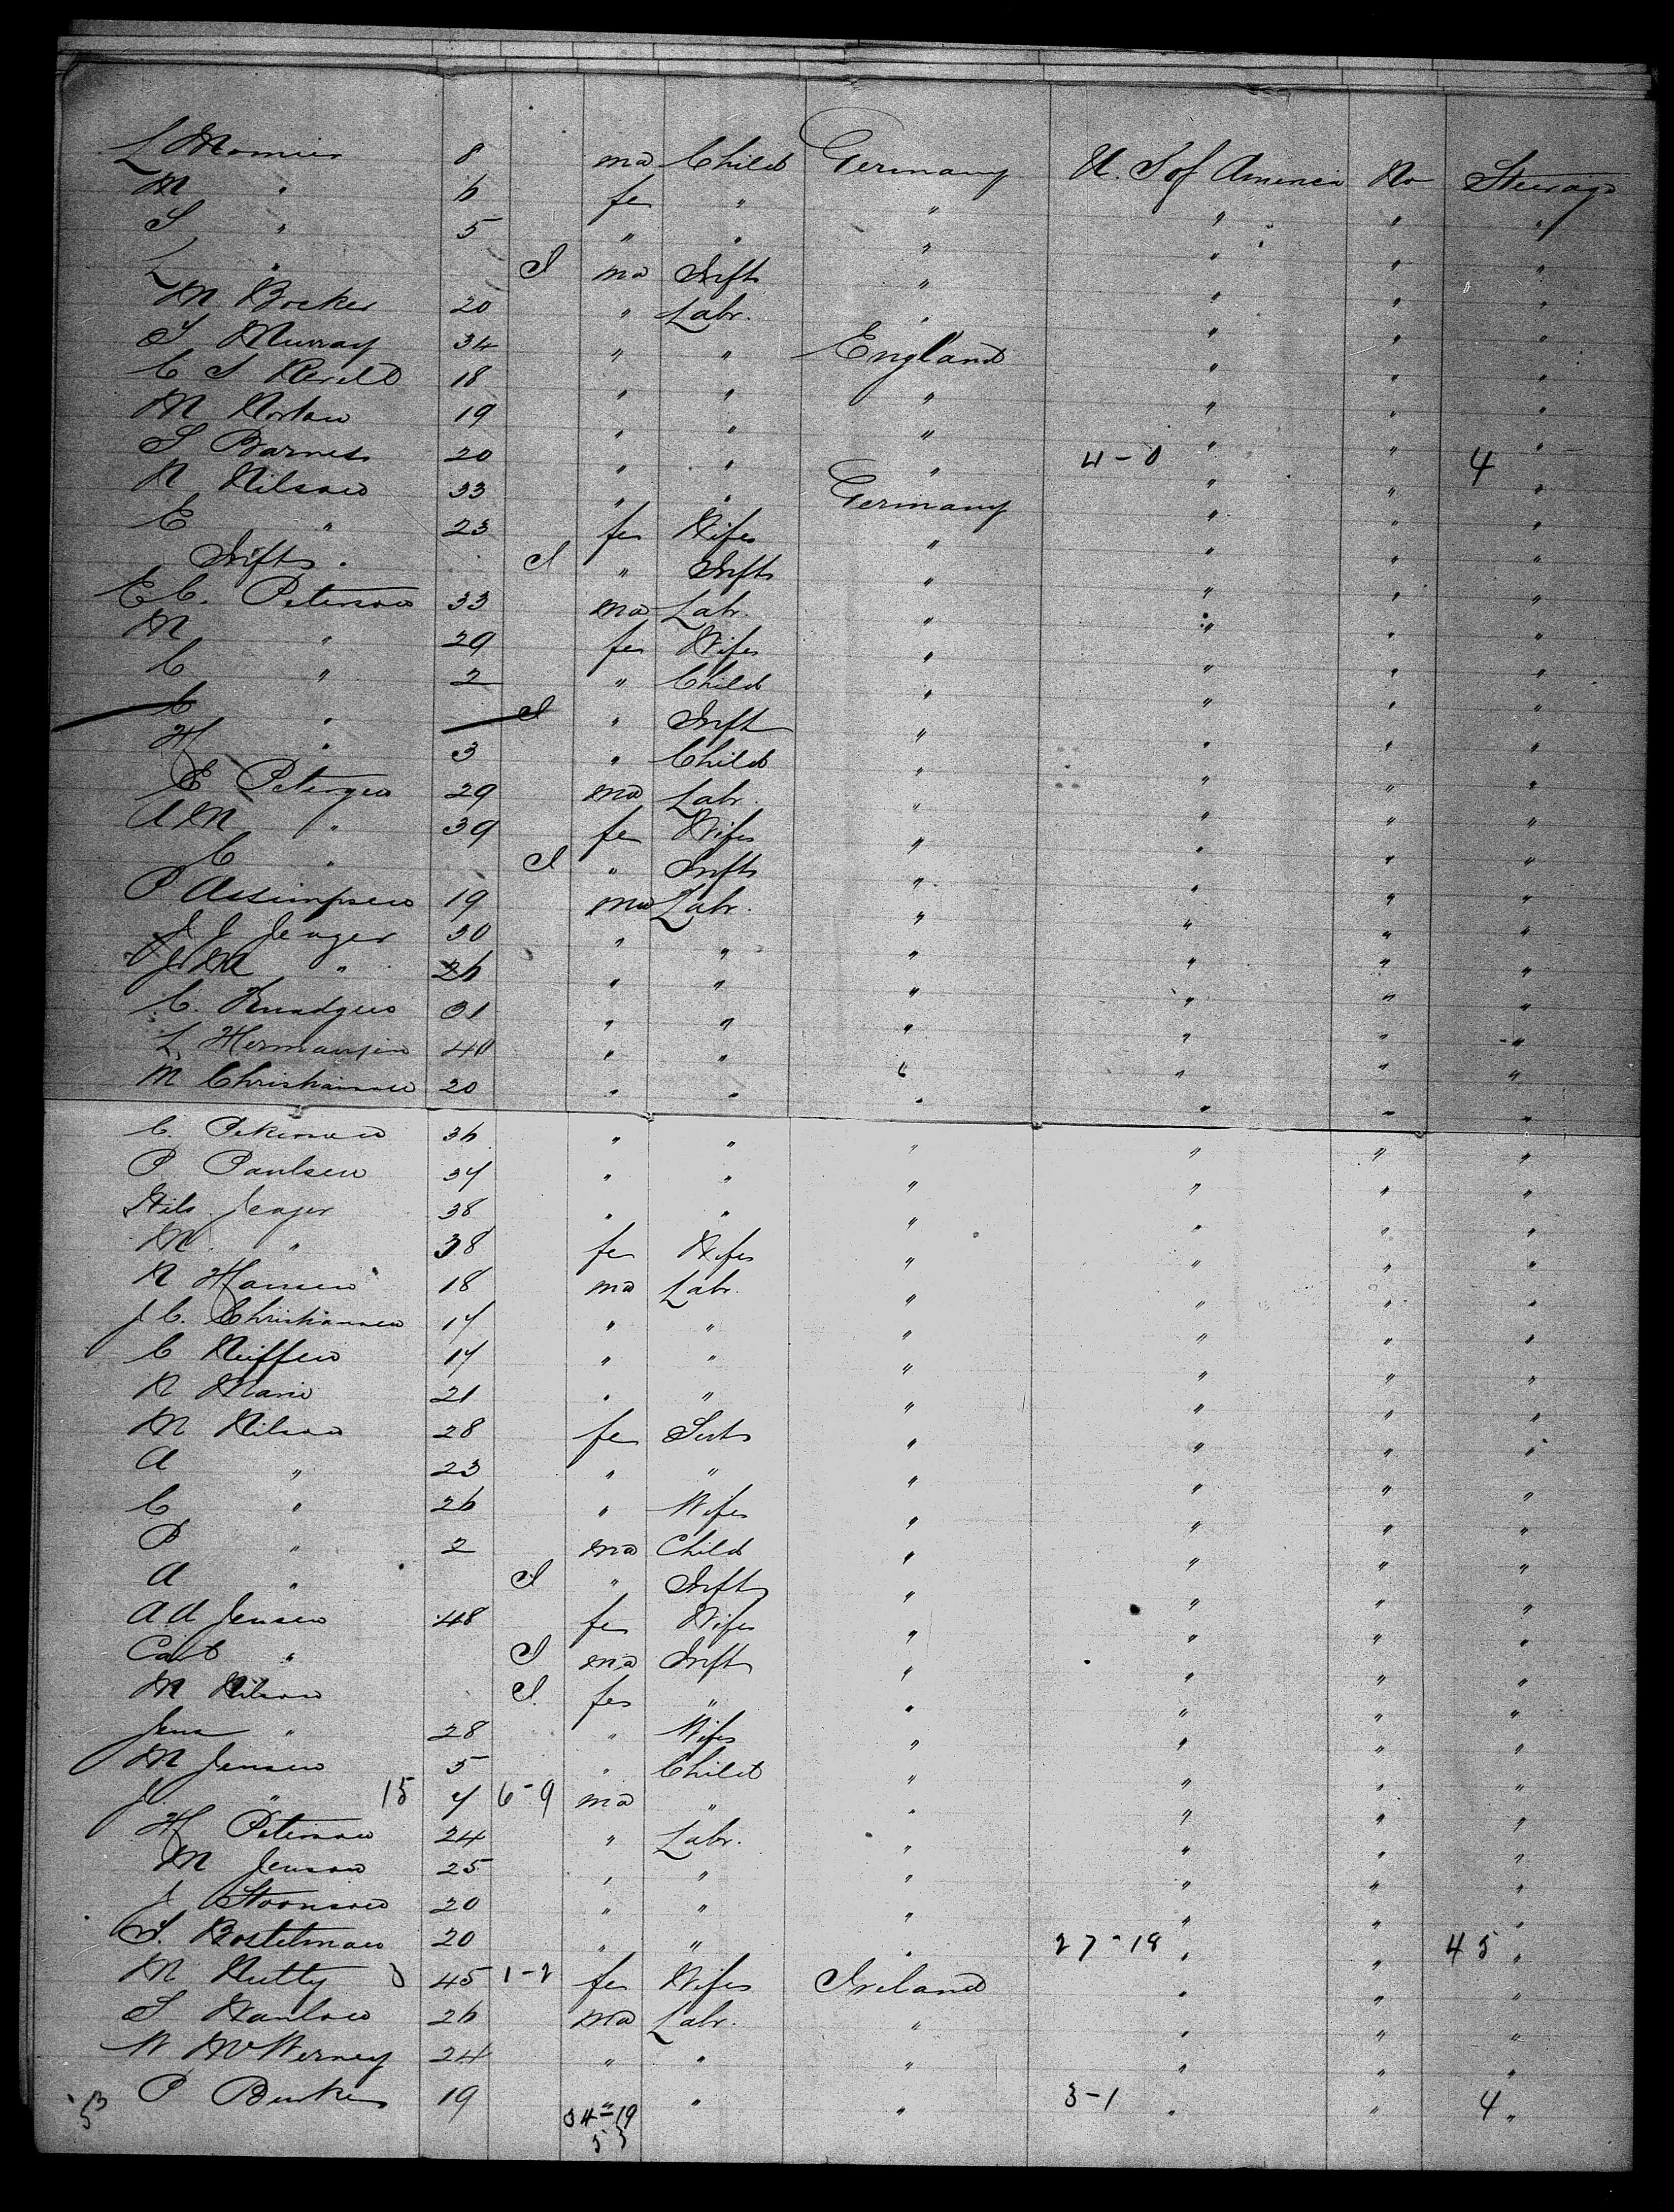 L 8 ma Child Germany U. S of America No Steerage
M " 6 fe " " " " "
S " 5 " " " " " "
L " I ma Inft " " " "
M Bocker 20 " Labr. " " " "
S Murray 34 " " England " " "
C S 18 " " " " " "
M Norton 19 " " " " " "
S Barnes 20 " " " 4-0 " " 4 "
N Nilson 33 " " Germany " " "
E " 23 fe Wife " " " "
Inft. I " Inft " " " "
E C. Peterson 33 ma Labr. " " " "
M " 29 fe Wife " " " "
C " 2 " Child " " " "
C " I " Inft " " " "
H " 3 " Child " " " "
E Petersen 29 ma Labr. " " " "
A M " 39 fe Wife " " " "
C " I " Inft " " " "
P Assimpsen 19 ma Labr. " " " "
J J Jenger 30 " " " " " "
J M " 26 " " " " " "
C. Knudgen 31 " " " " " "
L Hermansen 40 " " " " " "
M Christiansen 20 " " " " " "
C. Peterson 36 " " " " " "
P Paulsen 34 " " " " " "
Nils Jeager 38 " " " " " "
M. " 38 fe Wife " " " "
N Hansen 18 ma Labr. " " " "
J C. Christiansen 17 " " " " " "
C Neiffen 17 " " " " " "
N Marie 21 " " " " " "
M Nilson 28 fe Servt " " " "
A " 23 " " " " " "
C " 26 " Wife " " " "
P " 2 ma Child " " " "
A " I " Inft " " " "
A A Jensen 48 fe Wife " " " "
Carl " I ma Inft " " " "
M Nilson I. fe " " " " "
Jens " 28 " Wife " " " "
M Jensen 5 " Child " " " "
J. " 15 7 6-9 ma " " " " "
H Peterson 24 " Labr. " " " "
M Jenson 25 " " " " " "
J Stoonson 20 " " " " " "
S. Bostelman 20 " " " 27-18 " " 45 "
M Nutty 3 45 1-2 fe Wife Ireland " " "
S Hanlon 26 ma Labr. " " " "
W 24 " " " " " "
P Burke 19 " " " 3-1 " " 4 "
53 34-19
53